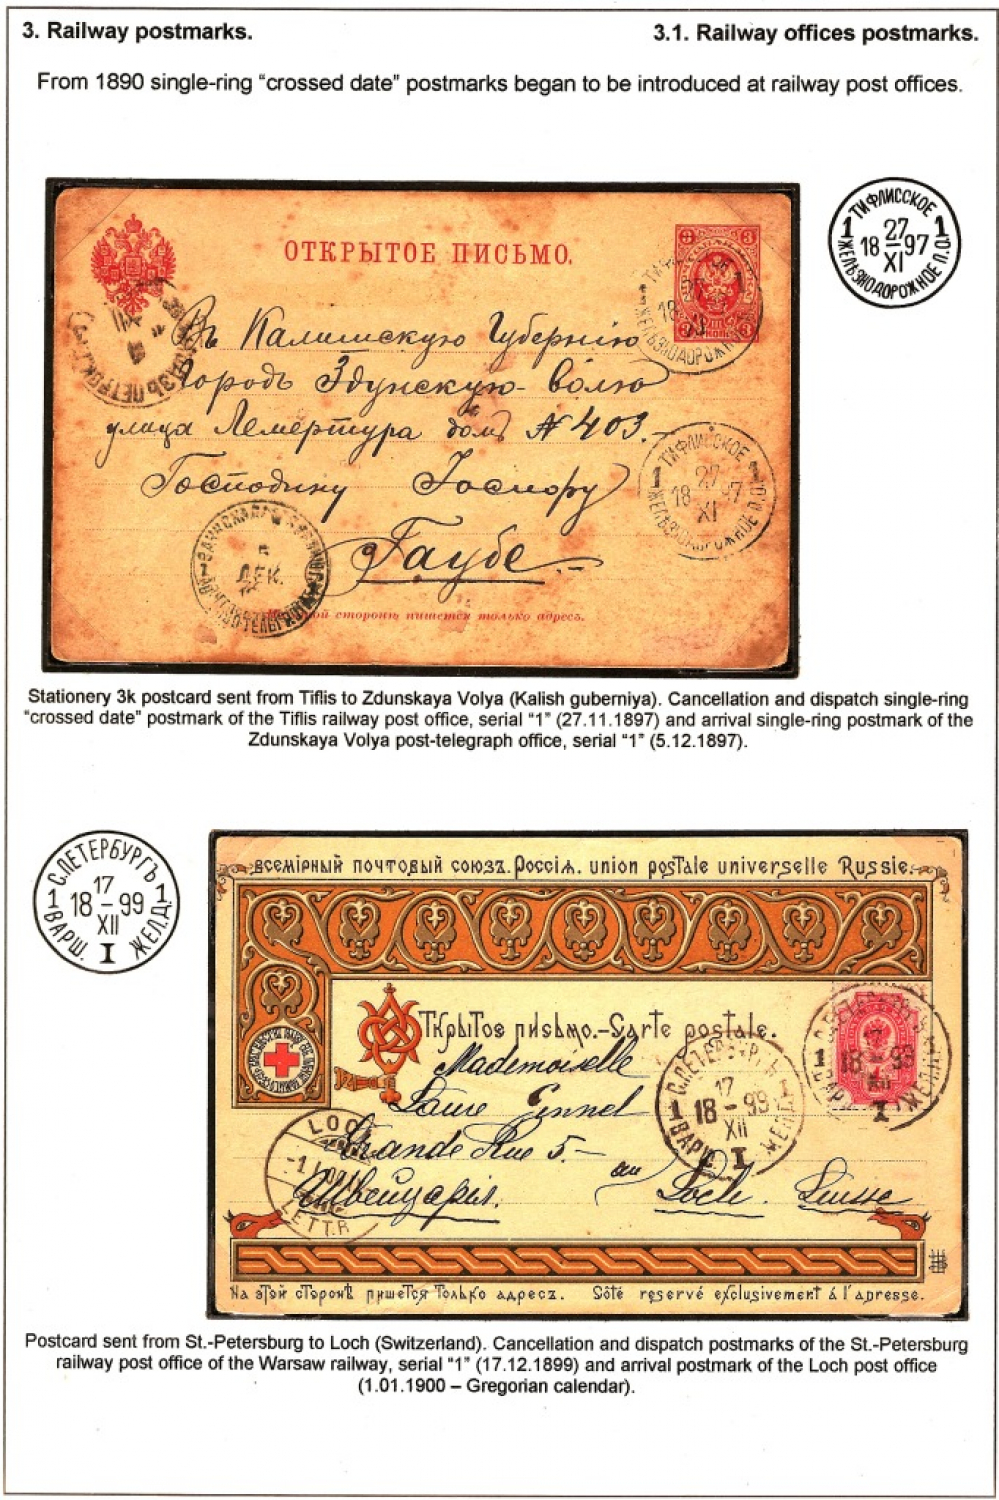 3. Railway postmarks.
3.1. Railway offices postmarks.
From 1890 single-ring “crossed date” postmarks began to be introduced at railway post offices.
ТИФЛИССКОЕ
1 27 1
18 97
XI
ЖЕЛѢЗНОДОРОЖНОЕ П.О.
ОТКРЫТОЕ ПИСЬМО.
3 3
18
ЖЕЛѢЗНОДОРОЖНОЕ
Въ Калишскую Губернію
Городъ Здунскую-волю
улица Лемертура домъ № 403.
Господину
Гаубе
ТИФЛИССКОЕ
1 27 1
18 97
XI
ЖЕЛѢЗНОДОРОЖНОЕ П.О.
5
ДЕК.
1
стороне пишется только адресъ.
Stationery 3k postcard sent from Tiflis to Zdunskaya Volya (Kalish guberniya). Cancellation and dispatch single-ring
“crossed date” postmark of the Tiflis railway post office, serial “1” (27.11.1897) and arrival single-ring postmark of the
Zdunskaya Volya post-telegraph office, serial “1” (5.12.1897).
С.ПЕТЕРБУРГЪ
17
1 18 – 99 1
XII
ВАРШ. I ЖЕЛ.Д.
всемірный почтовый союзъ. Россія. union postale universelle Russie.
Открытое письмо.–Carte postale.
Mademoiselle
Grande Rue 5.–
au Loch. Suisse
Швейцарія.
С.ПЕТЕРБУРГЪ
17
1 18 – 99 1
XII
ВАРШ. I ЖЕЛ.Д.
17
1 18 – 99
XII
I ЖЕЛ.Д.
LOCH
LETTR
На этой сторонѣ пишется только адресъ. Côté reservé exclusivement á l'adresse.
Postcard sent from St.-Petersburg to Loch (Switzerland). Cancellation and dispatch postmarks of the St.-Petersburg
railway post office of the Warsaw railway, serial “1” (17.12.1899) and arrival postmark of the Loch post office
(1.01.1900 – Gregorian calendar).